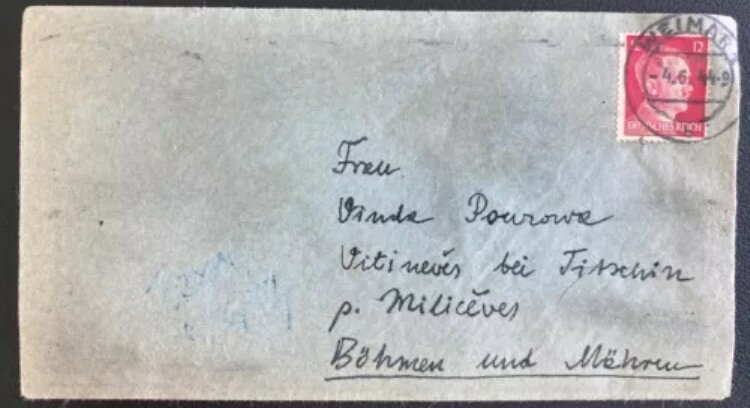 WEIMAR 1
12
- 4.6. 44-9
DEUTSCHES REICH
Frau
Vinda Pourowa
Vitineves bei Titschin
p. Miličeves
Böhmen und Mähren